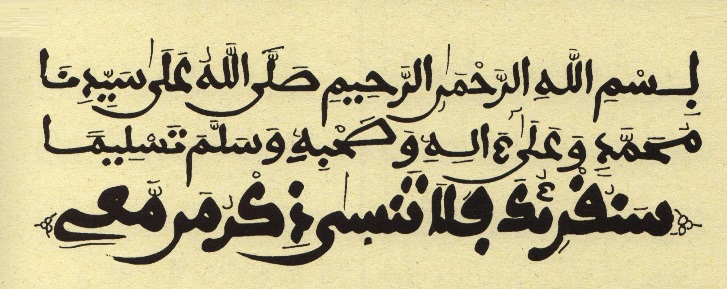 بِسْمِ اللَّهِ الرَّحْمَٰنِ الرَّحِيمِ صَلَّى اللَّهُ عَلَىٰ سَيِّدِنَا
مُحَمَّدٍ وَعَلَىٰ ءَالِهِ وَصَحْبِهِ وَسَلَّمَ تَسْلِيمًا
سَنُقْرِئُكَ فَلَا تَنسَىٰ ذِكْرُ مَن مَّعِي